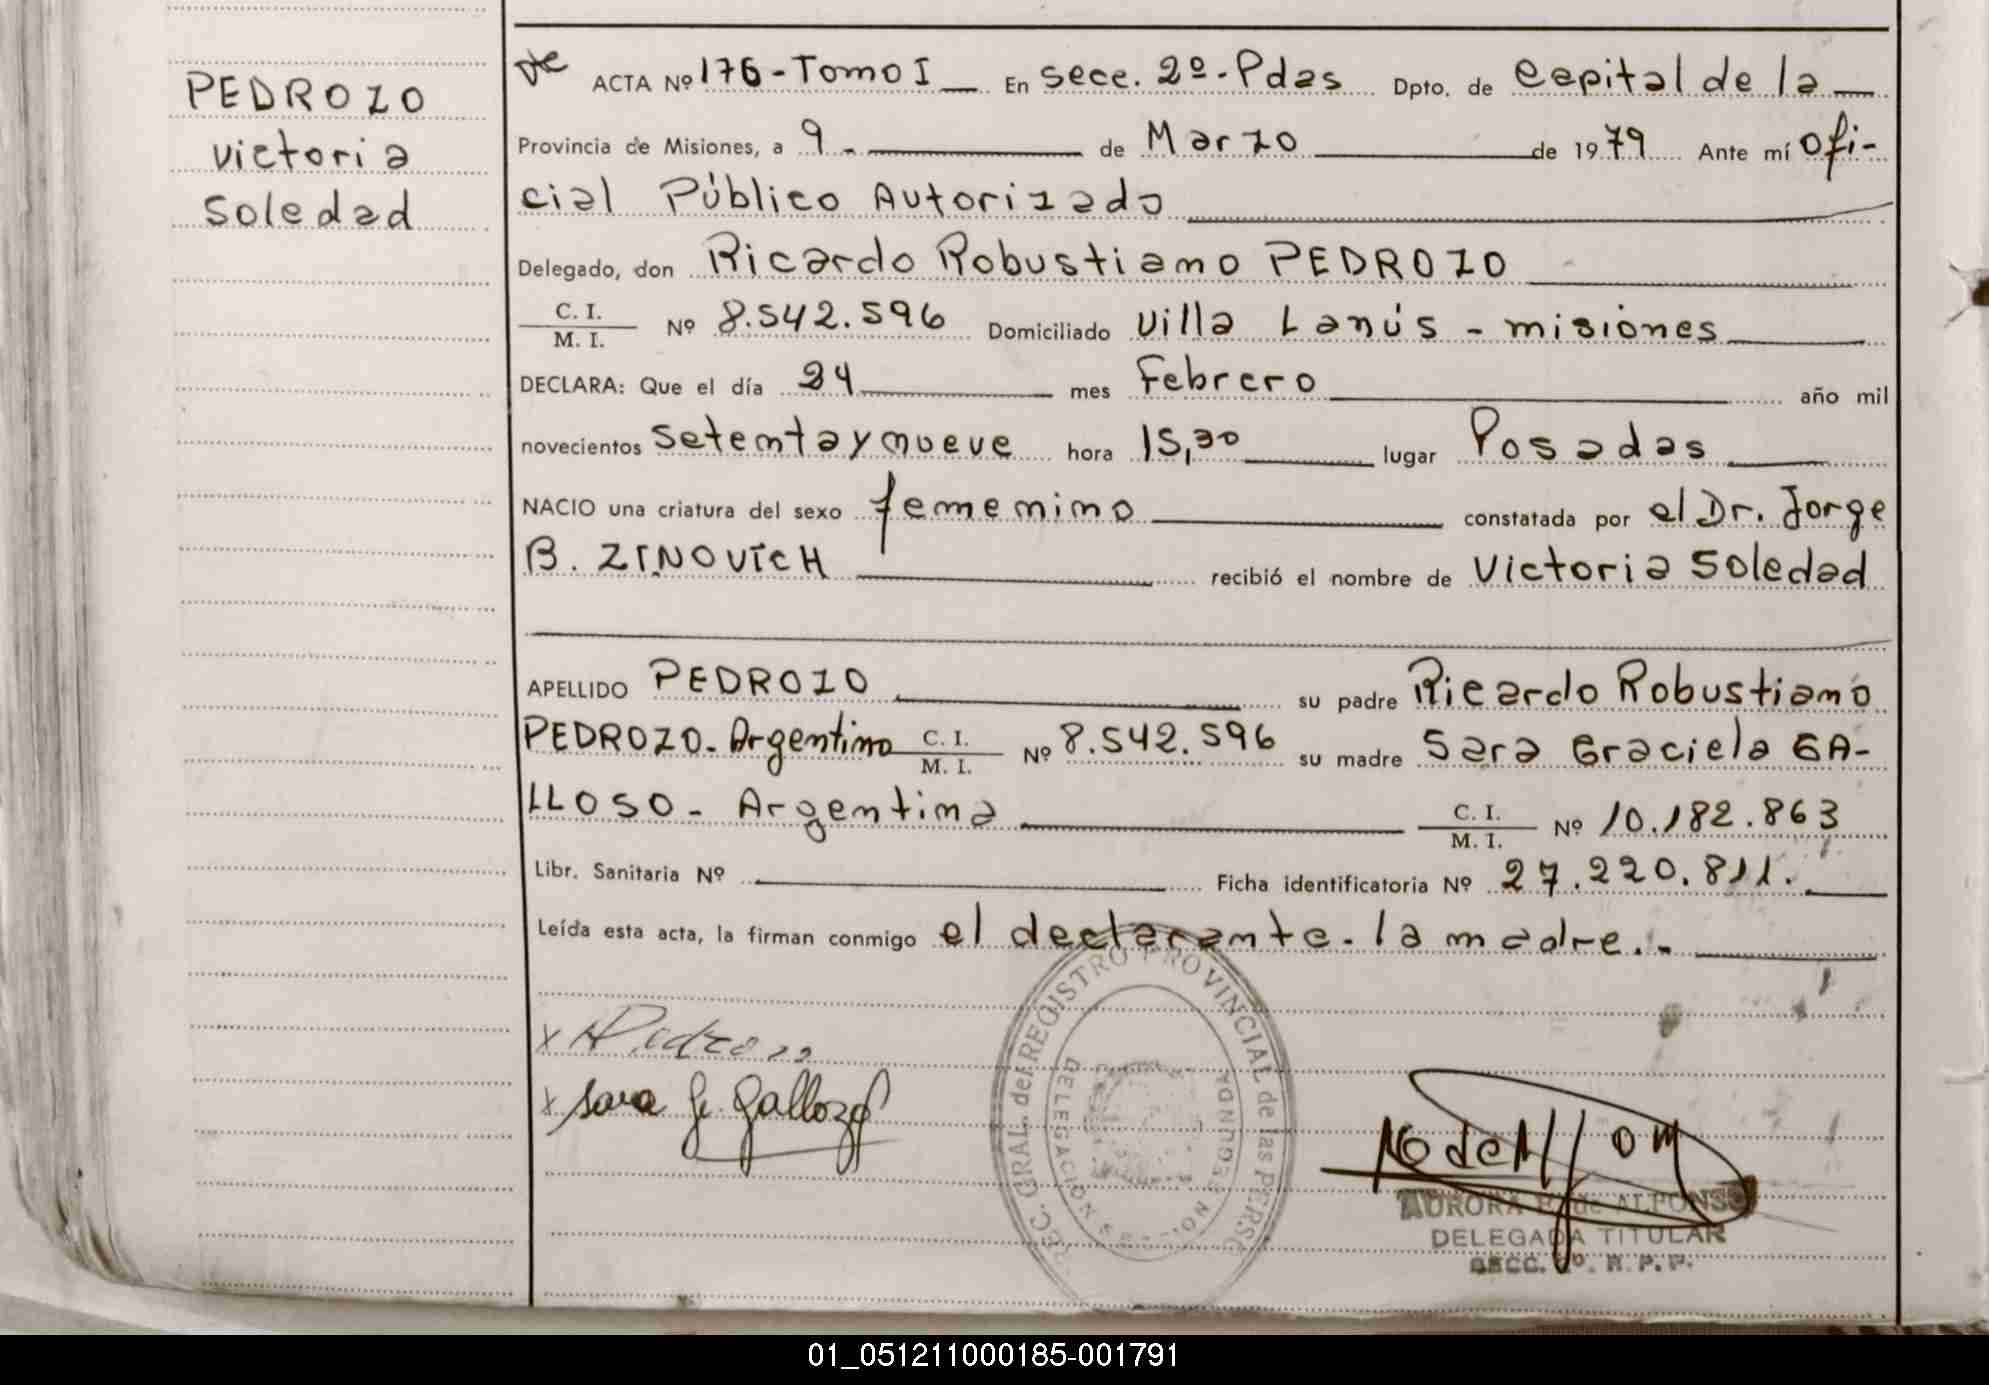 PEDROZO
Victoria
Soledad
ACTA Nº 176-Tomo I En Secc. 2º-Pdas Dpto. de Capital de la
Provincia de Misiones, a 9.- de Marzo de 1979 Ante mí Ofi-
cial Público Autorizado
Delegado, don Ricardo Robustiano PEDROZO
C. I.
M. I. Nº 8.542.596 Domiciliado Villa Lanús - misiones
DECLARA: Que el día 24 mes Febrero año mil
novecientos setenta y nueve hora 15,30 lugar Posadas
NACIO una criatura del sexo femenino constatada por el Dr. Jorge
B. ZINOVICH recibió el nombre de Victoria Soledad
APELLIDO PEDROZO su padre Ricardo Robustiano
PEDROZO- Argentino C. I.
M. I. Nº 8.542.596 su madre Sara Graciela GA-
LLOSO- Argentina C. I.
M. I. Nº 10.182.863
Libr. Sanitaria Nº Ficha identificatoria Nº 27.220.811.
Leída esta acta, la firman conmigo el declarante. la madre.-
x Pedrozo
x Sara G. Gallozo
SEC. GRAL. del REGISTRO PROVINCIAL de las PERS
DELEGACION SEGUNDA
AURORA de ALFONSO
DELEGADA TITULAR
SECC. 2º. R.P.P.
01_051211000185-001791